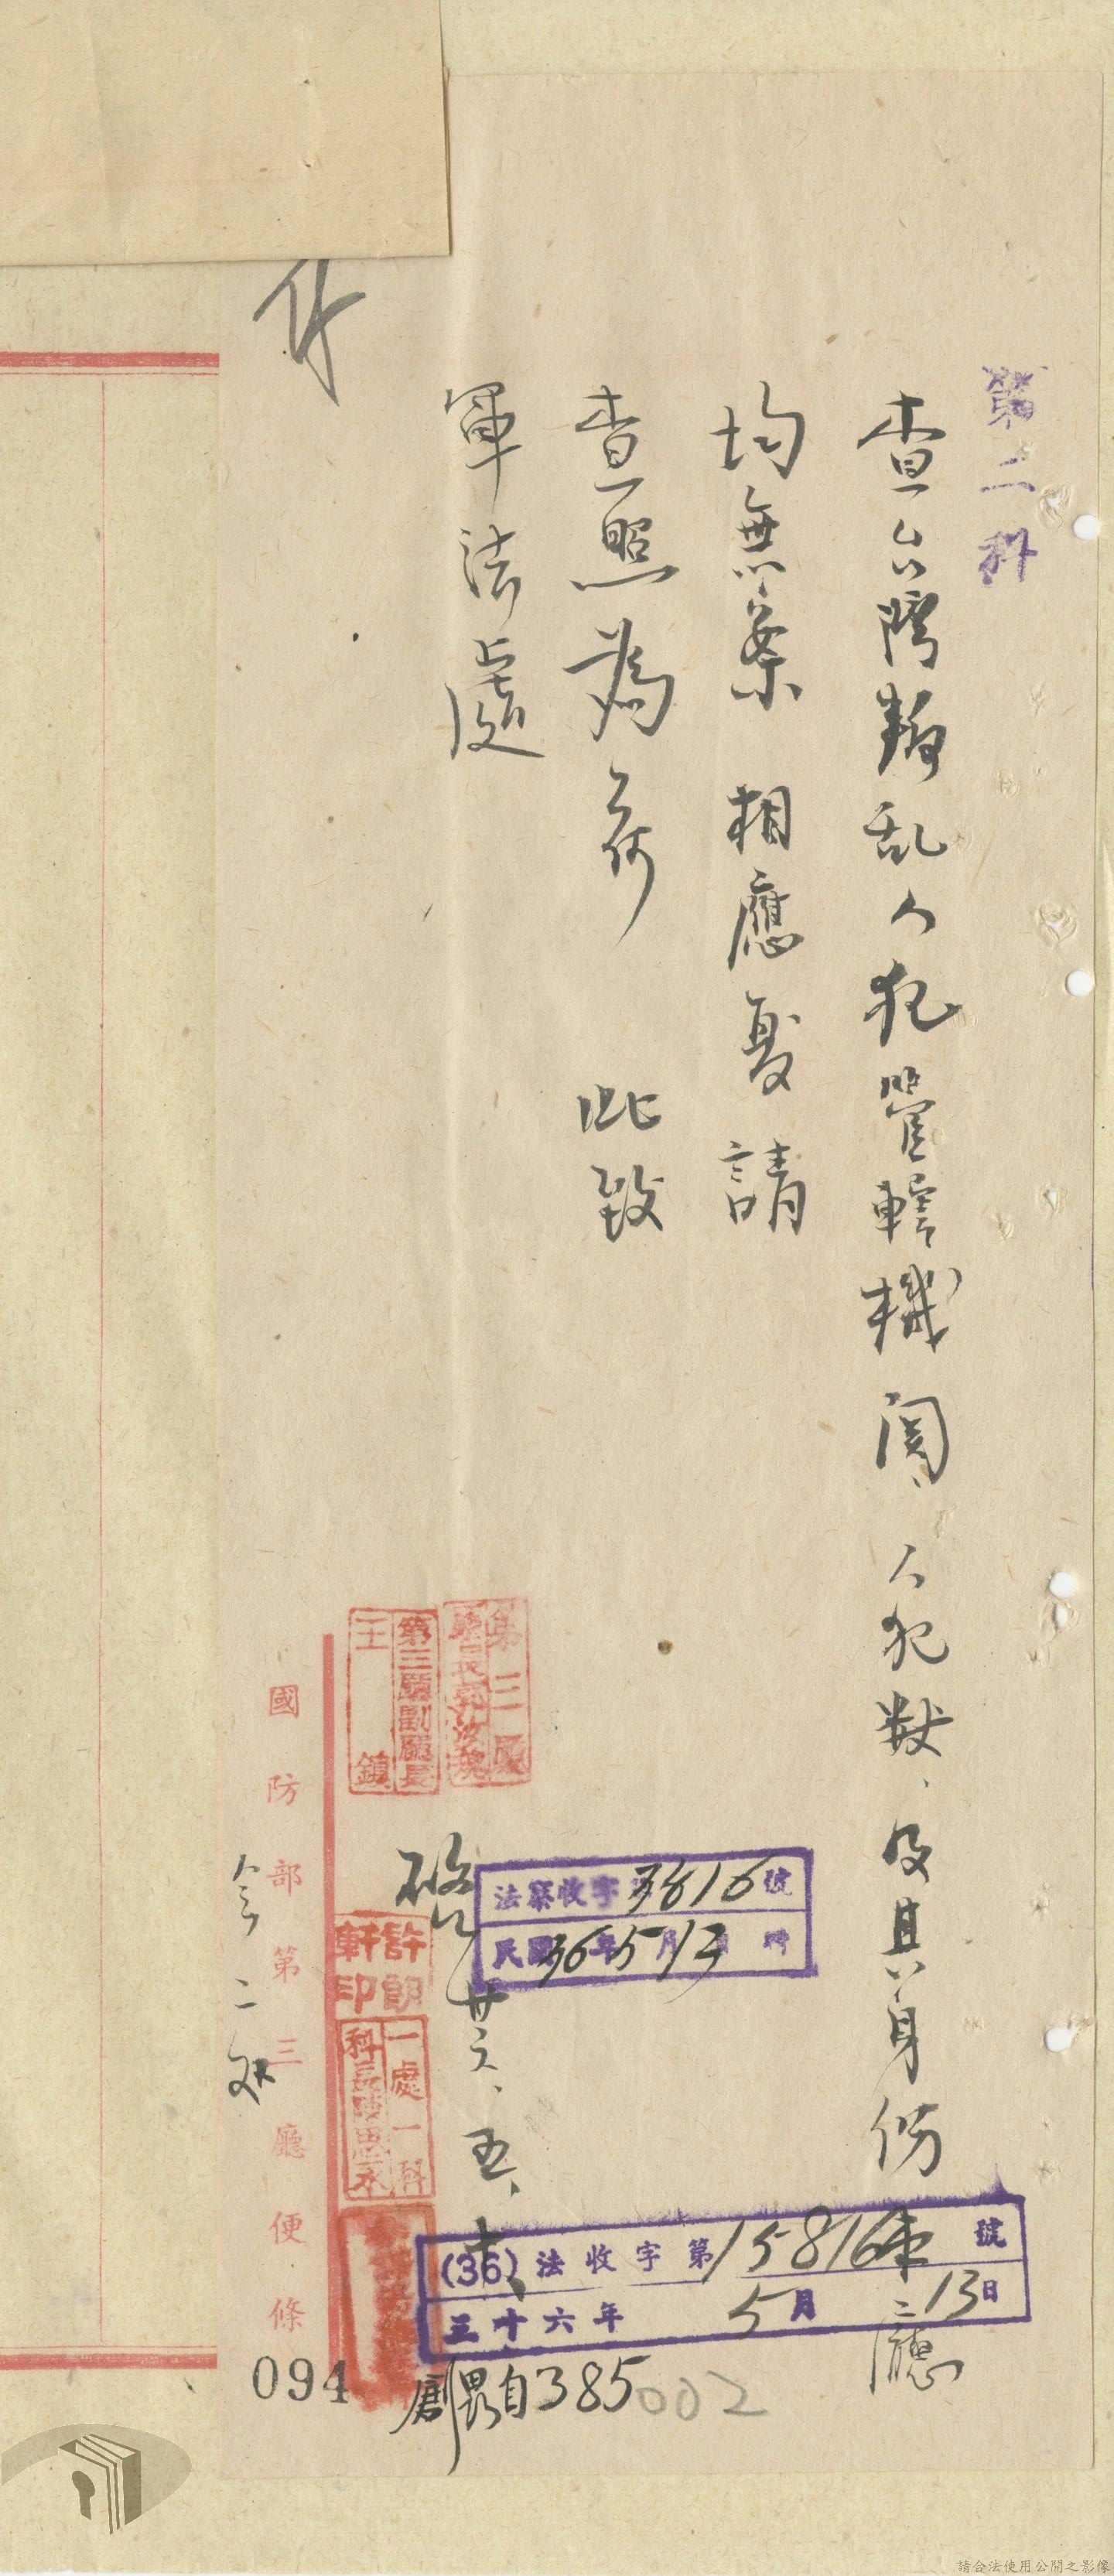 第二科
查台灣叛乱人犯管轄機関、人犯数、及其身份本廳
均無案相應復請
查照為荷 此致
軍法處
第三廳
第三廳副廳長
王鎮
啓 卅六、五、十
法察收字 3816號
民國36年5月13日 時
(36)法收字第15816號
三十六年5月13日
許朗軒印
一處一科
科長
385
002
國防部第三廳便條
094
請合法使用公開之影像